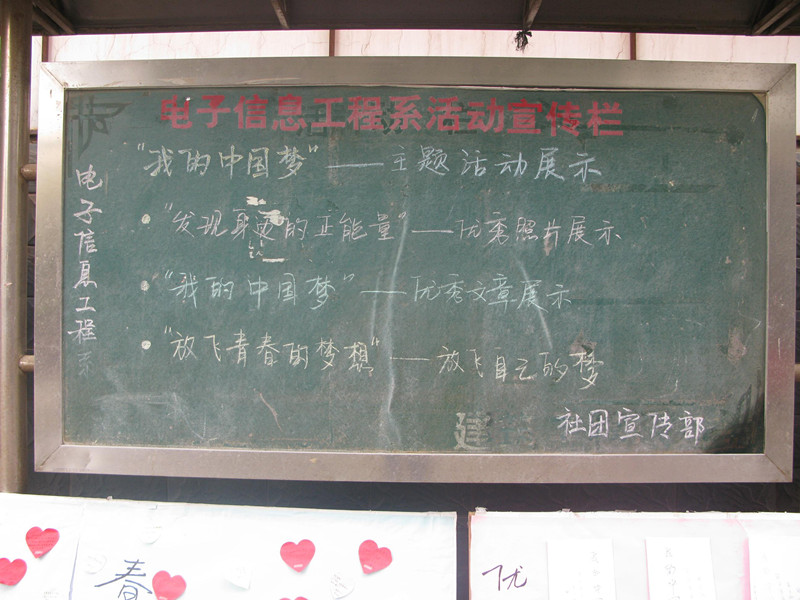 电子信息工程系活动宣传栏
"我的中国梦"——主题活动展示
电子信息工程系
·"发现身边的正能量"——优秀照片展示
·"我的中国梦"——优秀文章展示
·"放飞青春的梦想"——放飞自己的梦
建
社团宣传部
春
优